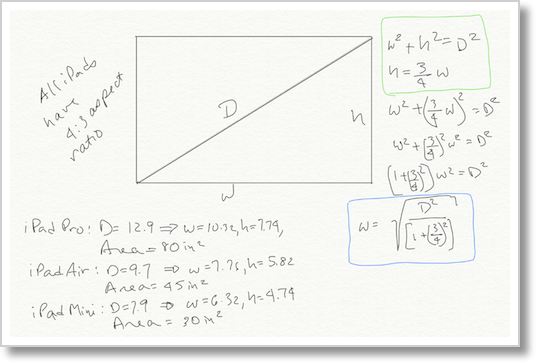 All iPads
have
4:3 aspect
ratio
D
h
w
w² + h² = D²
h = 3/4 w
w² + (3/4 w)² = D²
w² + (3/4)² w² = D²
(1 + (3/4)²) w² = D²
w = √(D² / [1 + (3/4)²])
iPad Pro: D = 12.9 ⇒ w = 10.32, h = 7.74,
Area = 80 in²
iPad Air: D = 9.7 ⇒ w = 7.76, h = 5.82
Area = 45 in²
iPad Mini: D = 7.9 ⇒ w = 6.32, h = 4.74
Area = 30 in²